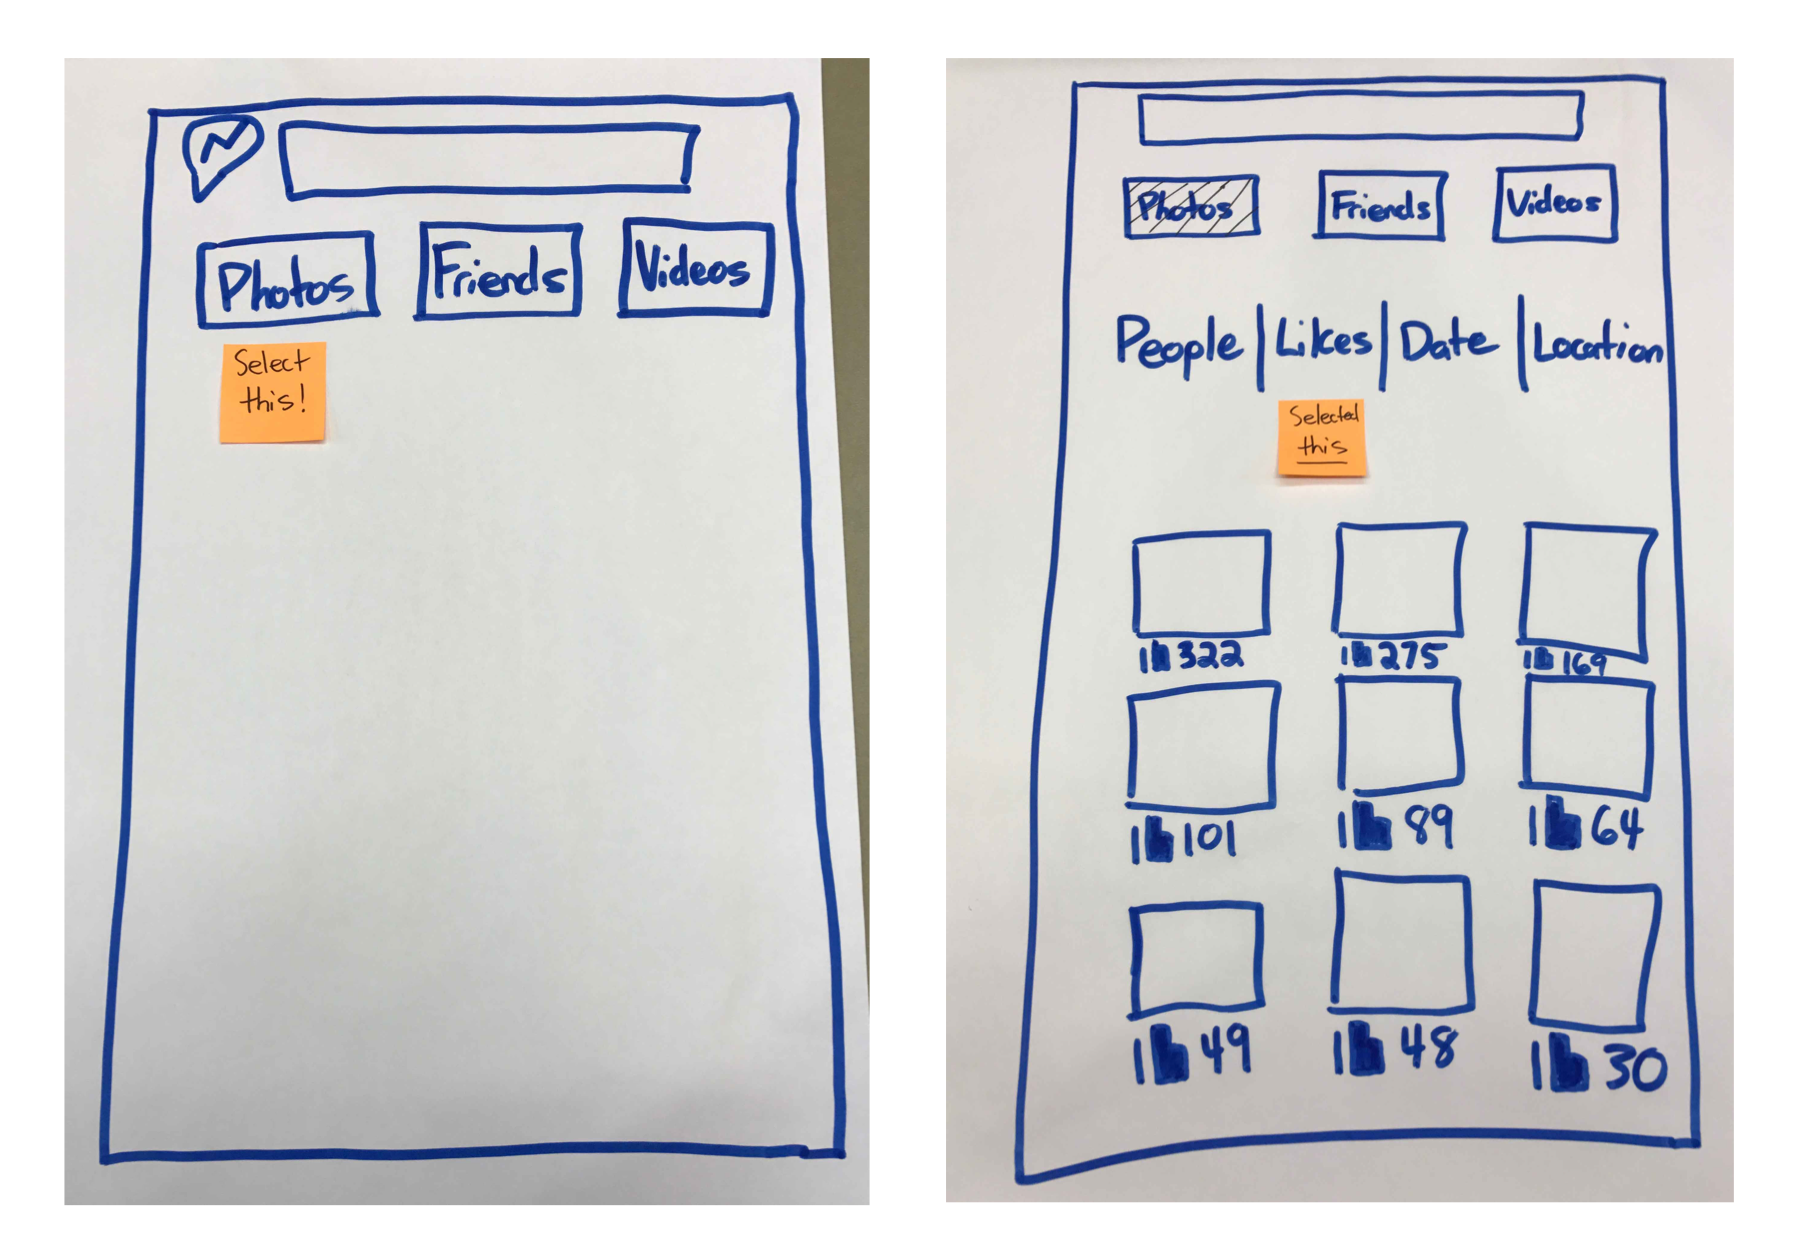 Photos Friends Videos
Select
this!
Photos Friends Videos
People | Likes | Date | Location
Selected
this
322 275 169
101 89 64
49 48 30